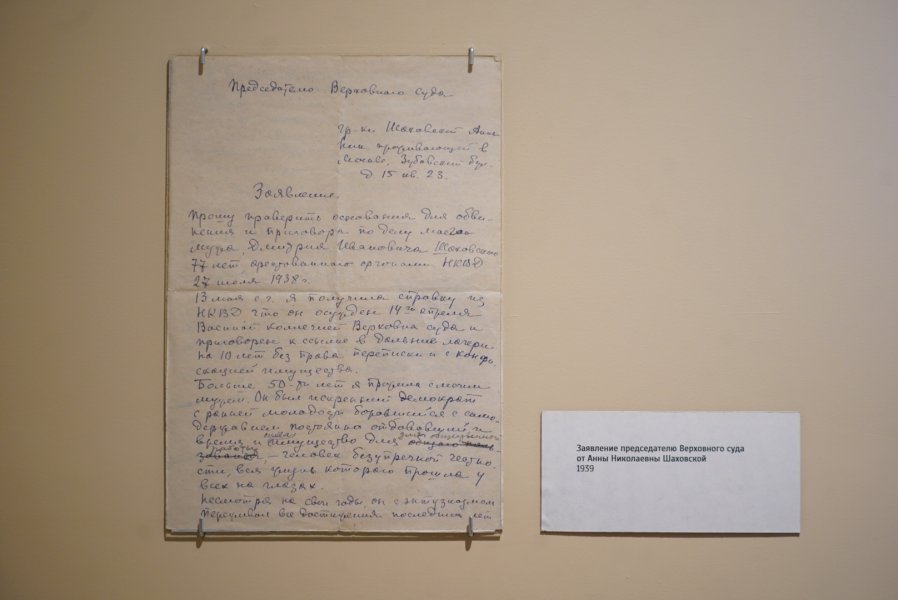 Председателю Верховного суда
гр-ки Шаховской Анны
Ник. проживающей в
Москве, Зубовский бул.
д 15 кв. 23.
Заявление.
Прошу проверить основания для обви-
нения и приговора по делу моего
мужа, Дмитрия Ивановича Шаховского
77 лет арестованного органами НКВД
27 июля 1938 г.
13 мая с.г. я получила справку из
НКВД что он осужден 14го апреля
Военной коллегией Верховна суда и
приговорен к ссылке в дальние лагери
на 10 лет без права переписки и с конфи
скацией имущества.
Больше 50-ти лет я прожила с моим
мужем. Он был искренний демократ
с ранней молодости боровшийся с само
державием постоянно отдававший и
время и имущество для
– человек безупречной честно
сти вся жизнь которого прошла у
всех на глазах.
Несмотря на свои годы, он с энтузиазмом
переживал все достижения последних лет
Заявление председателю Верховного суда
от Анны Николаевны Шаховской
1939